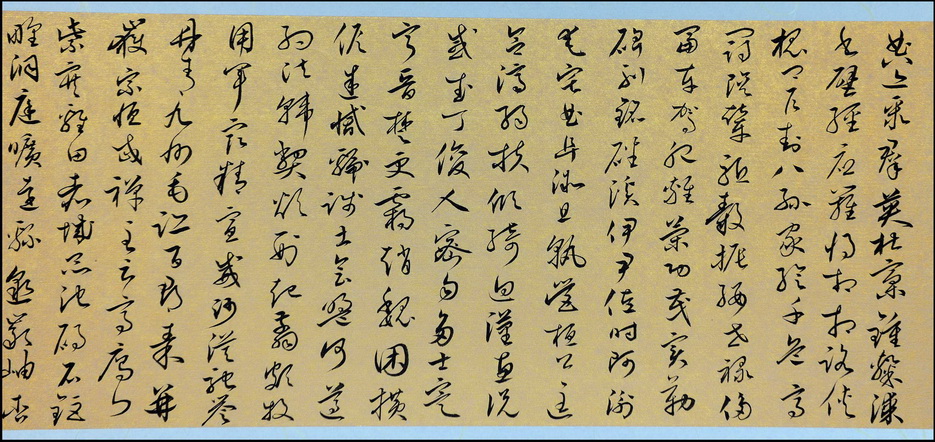 典亦聚群英杜稾鍾隸漆
書壁經府羅將相路俠
槐卿戶封八縣家給千兵高
冠陪輦驅轂振纓世祿侈
富車駕肥輕策功茂實勒
碑刻銘磻溪伊尹佐時阿衡
奄宅曲阜微旦孰營桓公匡
合濟弱扶傾綺迴漢惠說
感武丁俊乂密勿多士寔
寧晉楚更霸趙魏困橫
假途滅虢踐土會盟何遵
約法韓弊煩刑起翦頗牧
用軍最精宣威沙漠馳譽
丹青九州禹跡百郡秦并
嶽宗恆岱禪主云亭雁門
紫塞雞田赤城昆池碣石鉅
野洞庭曠遠綿邈巖岫杳